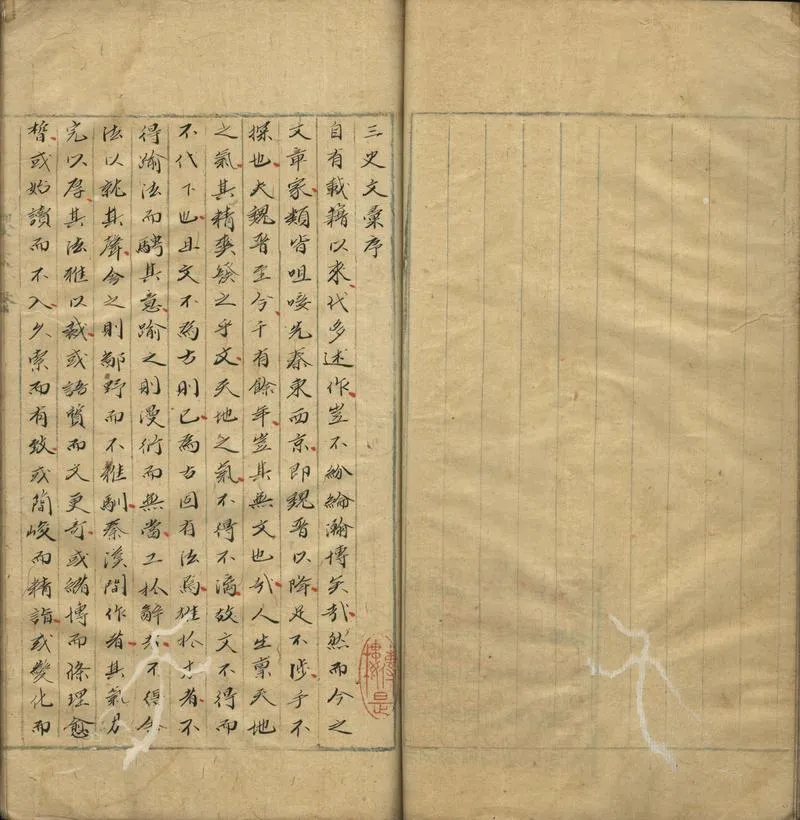 三史文彙序
自有載籍以來代多述作豈不紛綸瀚博矣哉然而今之
文章家類皆咀唼先秦東西京即魏晋以降足不涉手不
探也夫魏晋至今千有餘年豈其無文也哉人生稟天地
之氣其精爽發之乎文天地之氣不得不漓故文不得而
不代下也且文不為古則已為古固有法焉雅於古者不
得踰法而騁其意踰之則漫衍而無當工於辭者不得舍
法以就其聲舍之則鄙野而不雅馴秦漢間作者其氣力
完以厚其法雅以裁或語質而文更奇或緒博而條理愈
皙或始讀而不入久索而有致或簡峻而精詣或變化而